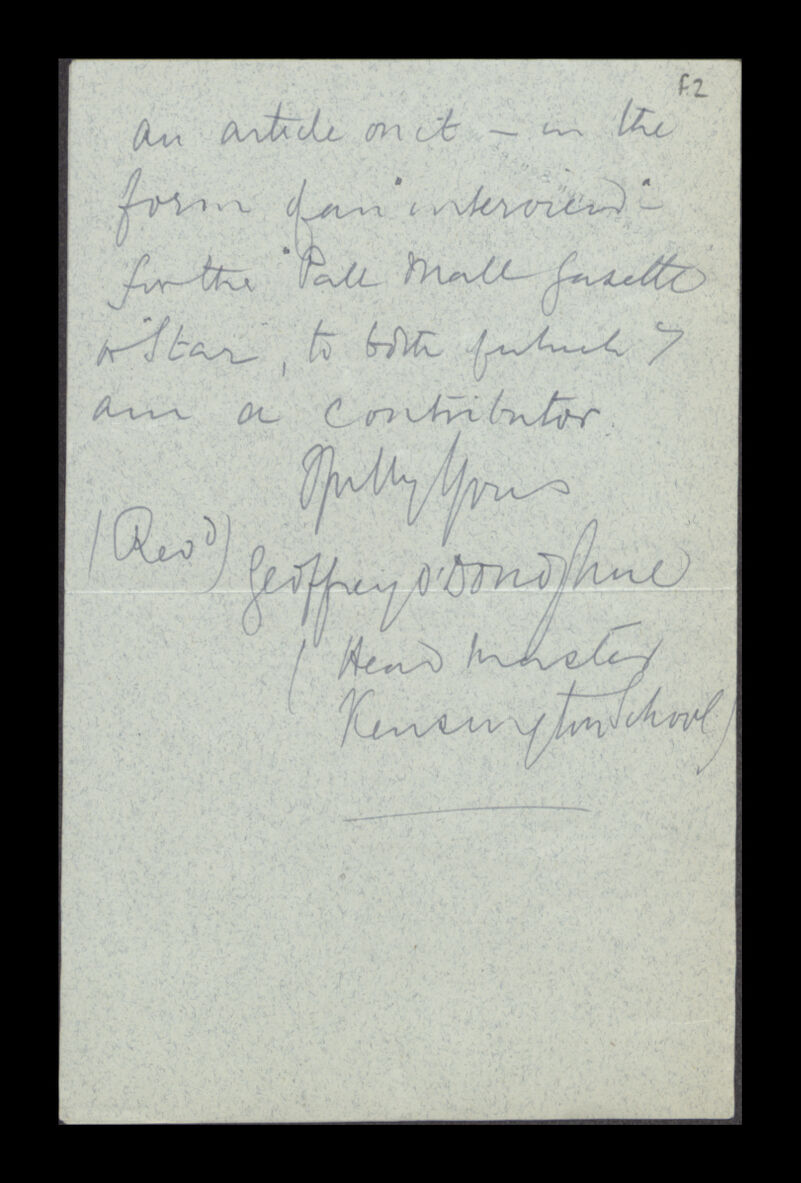 F.2
an article on it – in the
form of an "interview" –
for the "Pall Mall Gazette"
or "Star", to both of which I
am a contributor.
Yours
(Revd) Geoffrey O'Donoghue
(Head Master
Kensington School)